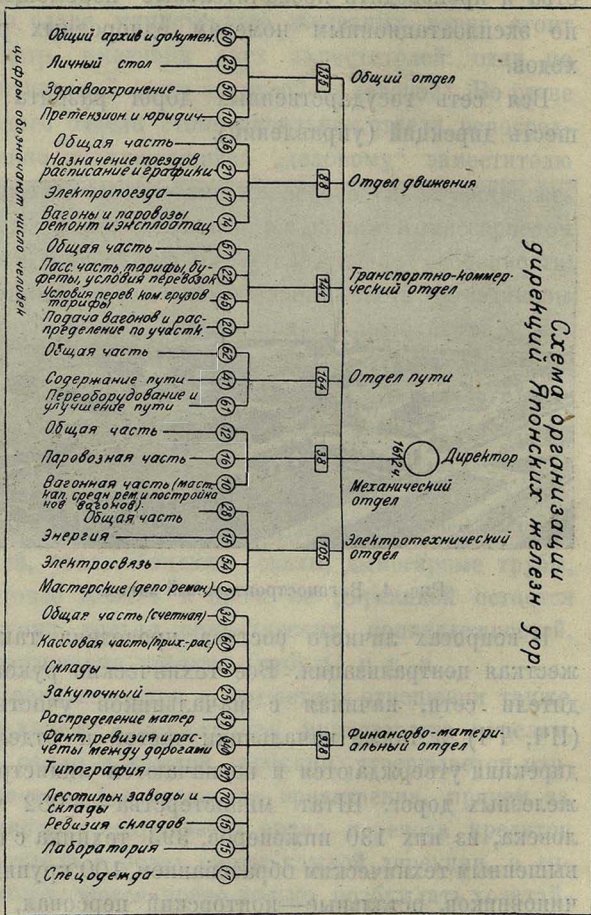 по эксплоатационным номерам
ходов.
Вся сеть государственных дорог
шесть дирекций (управлений).
Схема организации
дирекций Японских железн дор.
цифры обозначают число человек
Директор
1612 ч.
Общий архив и докумен.
Личный стол 25
Здравоохранение 50
Претензион и юридич. 10
135 Общий отдел
Общая часть 36
Назначение поездов
расписание и графики 21
Электропоезда 17
Вагоны и паровозы
ремонт и эксплоатац 14
88 Отдел движения
Общая часть 57
Пасс. часть, тарифы, бу-
феты, условия перевозок 22
Условия перев. ком. грузов
тарифы 45
Подача вагонов и рас-
пределение по участк. 20
144 Транспортно-коммер-
ческий отдел
Общая часть 62
Содержание пути 41
Переоборудование и
улучшение пути 61
164 Отдел пути
Общая часть 12
Паровозная часть 16
Вагонная часть (маст.
кап. средн рем. и постройка
нов вагонов). 10
38 Механический
отдел
Общая часть 28
Энергия 15
Электросвязь 54
Мастерские (депо ремон.) 8
105 Электротехнический
отдел
Общая часть (счетная) 34
Кассовая часть (прих-рас)
Склады 26
Закупочный 25
Распределение матер 37
Факт. ревизия и рас-
четы между дорогами
Типография
Лесопильн. заводы и
склады 70
Ревизия складов 15
Лаборатория 15
Спецодежда 17
938 Финансово-матери-
альный отдел
Рис. 4.
В вопросах личного
жесткая централизация.
дители сети, начиная с начальников
дирекции утверждаются и
железных дорог. Штат
ловека, из них 130 инженеров,
вышенным техническим образованием,
чиновников, остальные—конторский персонал,